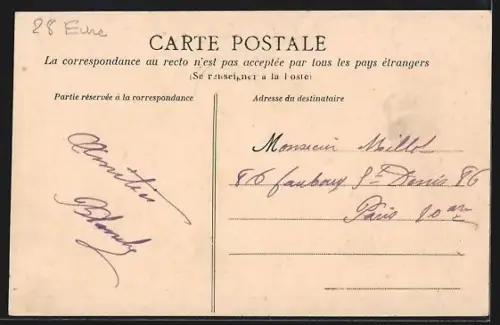 28 Eure
CARTE POSTALE
La correspondance au recto n'est pas acceptée par tous les pays étrangers
(Se renseigner à la Poste)
Partie réservée à la correspondance
Adresse du destinataire
Amitiés
Blanche
Monsieur Millot
86 faubourg St Denis 86
Paris 10me